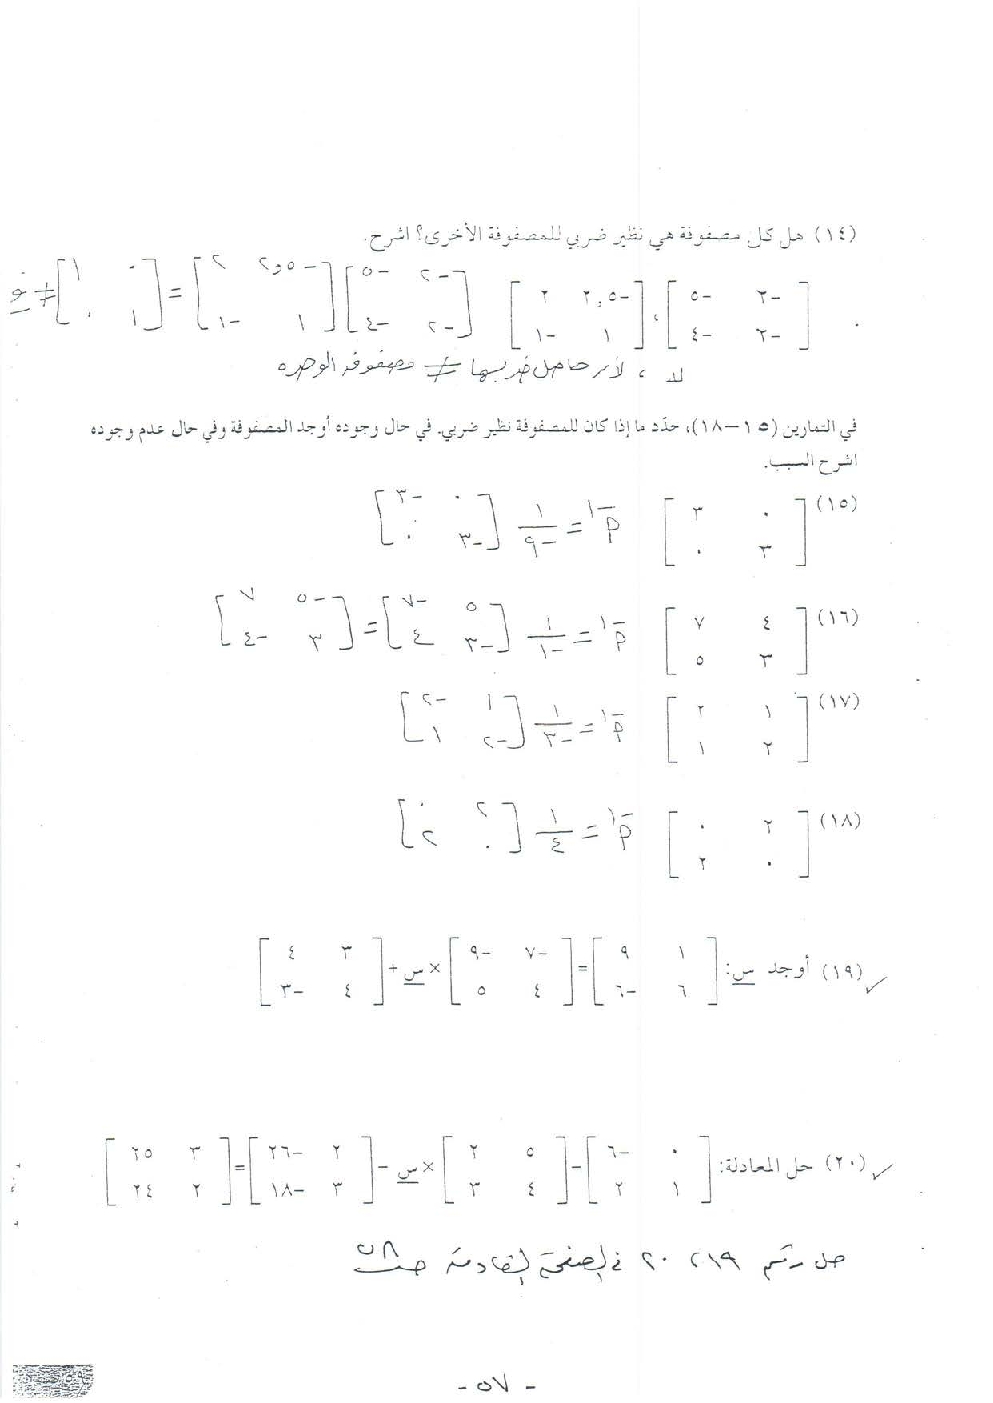 (١٤) هل كل مصفوفة هي نظير ضربي للمصفوفة الأخرى؟ اشرح.
[-٢ -٥ ; -٢ -٤] ، [-٢,٥ ٢ ; ١ -١] [-٢ -٥ ; -٢ -٤] [-٢,٥ ٢ ; ١ -١] = [٠ ١ ; ١ ٠] ≠ و
لا ، لأن حاصل ضربها ≠ مصفوفة الوحدة
في التمارين (١٥-١٨)، حدّد ما إذا كان للمصفوفة نظير ضربي. في حال وجوده أوجد المصفوفة وفي حال عدم وجوده
اشرح السبب.
(١٥) [٠ ٣ ; ٣ ٠] م⁻¹ = ١/-٩ [٠ -٣ ; -٣ ٠]
(١٦) [٤ ٧ ; ٣ ٥] م⁻¹ = ١/-١ [٥ -٧ ; -٣ ٤] = [-٥ ٧ ; ٣ -٤]
(١٧) [١ ٢ ; ٢ ١] م⁻¹ = ١/-٣ [١ -٢ ; -٢ ١]
(١٨) [٢ ٠ ; ٠ ٢] م⁻¹ = ١/٤ [٢ ٠ ; ٠ ٢]
(١٩) أوجد س: [١ ٩ ; ٦ -٦] = [-٧ -٩ ; ٤ ٥] × س + [٣ ٤ ; ٤ -٣]
(٢٠) حل المعادلة: [٠ -٦ ; ١ ٢] - [٥ ٢ ; ٤ ٣] × س - [٢ -٢٦ ; ٣ -١٨] = [٣ ٢٥ ; ٢ ٢٤]
حل رقم ١٩ ، ٢٠ في الصفحة القادمة ص٥٨
- ٥٧ -